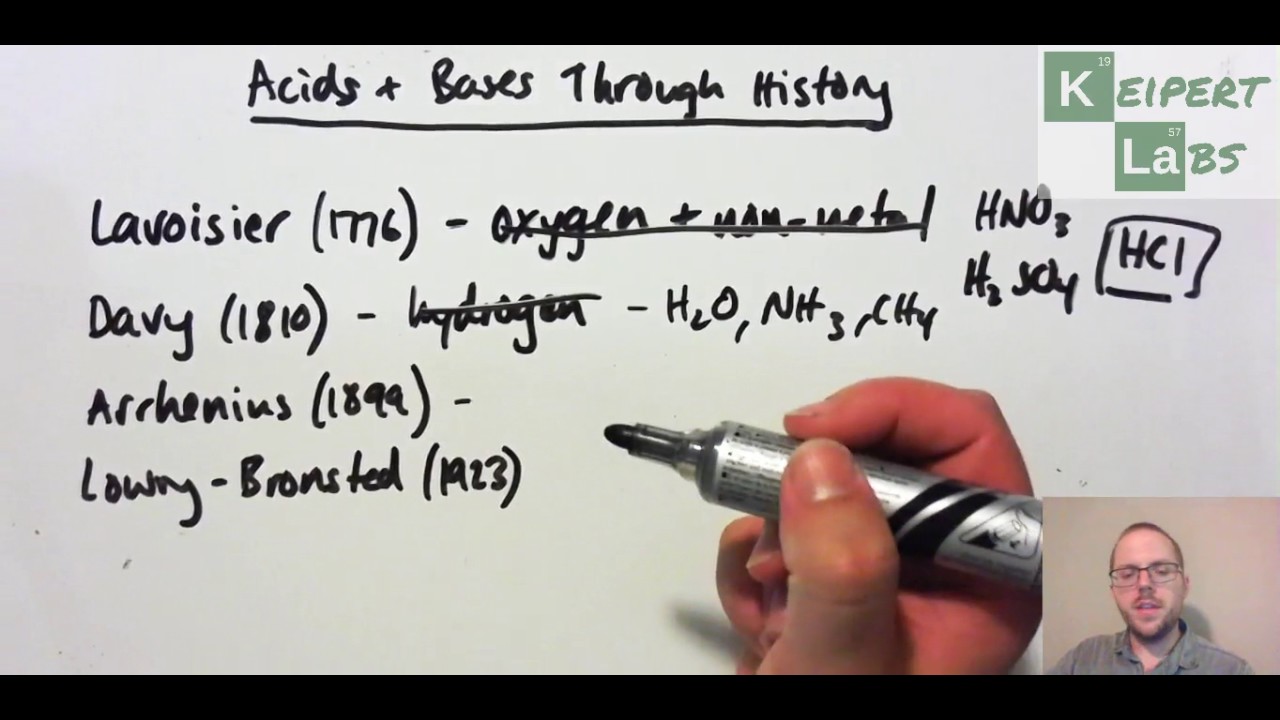 Acids + Bases Through History
19
KEIPERT
57
LaBS
Lavoisier (1776) - oxygen + non-metal HNO3
H2SO4 HCl
Davy (1810) - hydrogen - H2O, NH3, CH4
Arrhenius (1899) -
Lowry-Bronsted (1923)